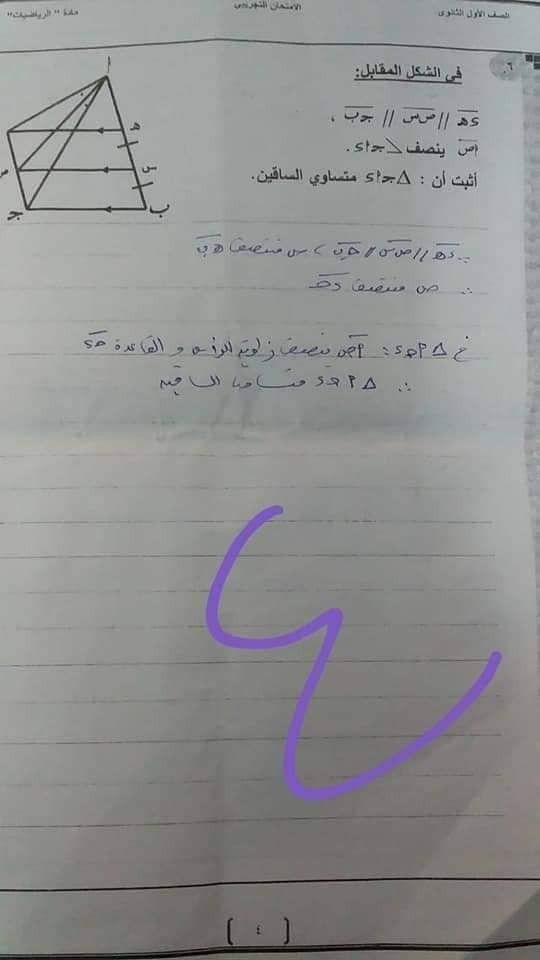 الصف الأول الثانوى
الامتحان التجريبى
مادة " الرياضيات"
٦.
فى الشكل المقابل:
ءهـ // ص س // جـ ب ،
أص ينصف ∠ جـ أ ء.
أثبت أن : Δ جـ أ ء متساوي الساقين.
أ
هـ
س
ب
جـ
∵ ءهـ // ص س // جـ ب ، س منتصف هـ ب
∴ ص منتصف ء جـ
فى Δ أ جـ ء : أص ينصف زاوية الرأس و القاعدة جـ ء
∴ Δ أ جـ ء متساوى الساقين
٤
[ ٤ ]